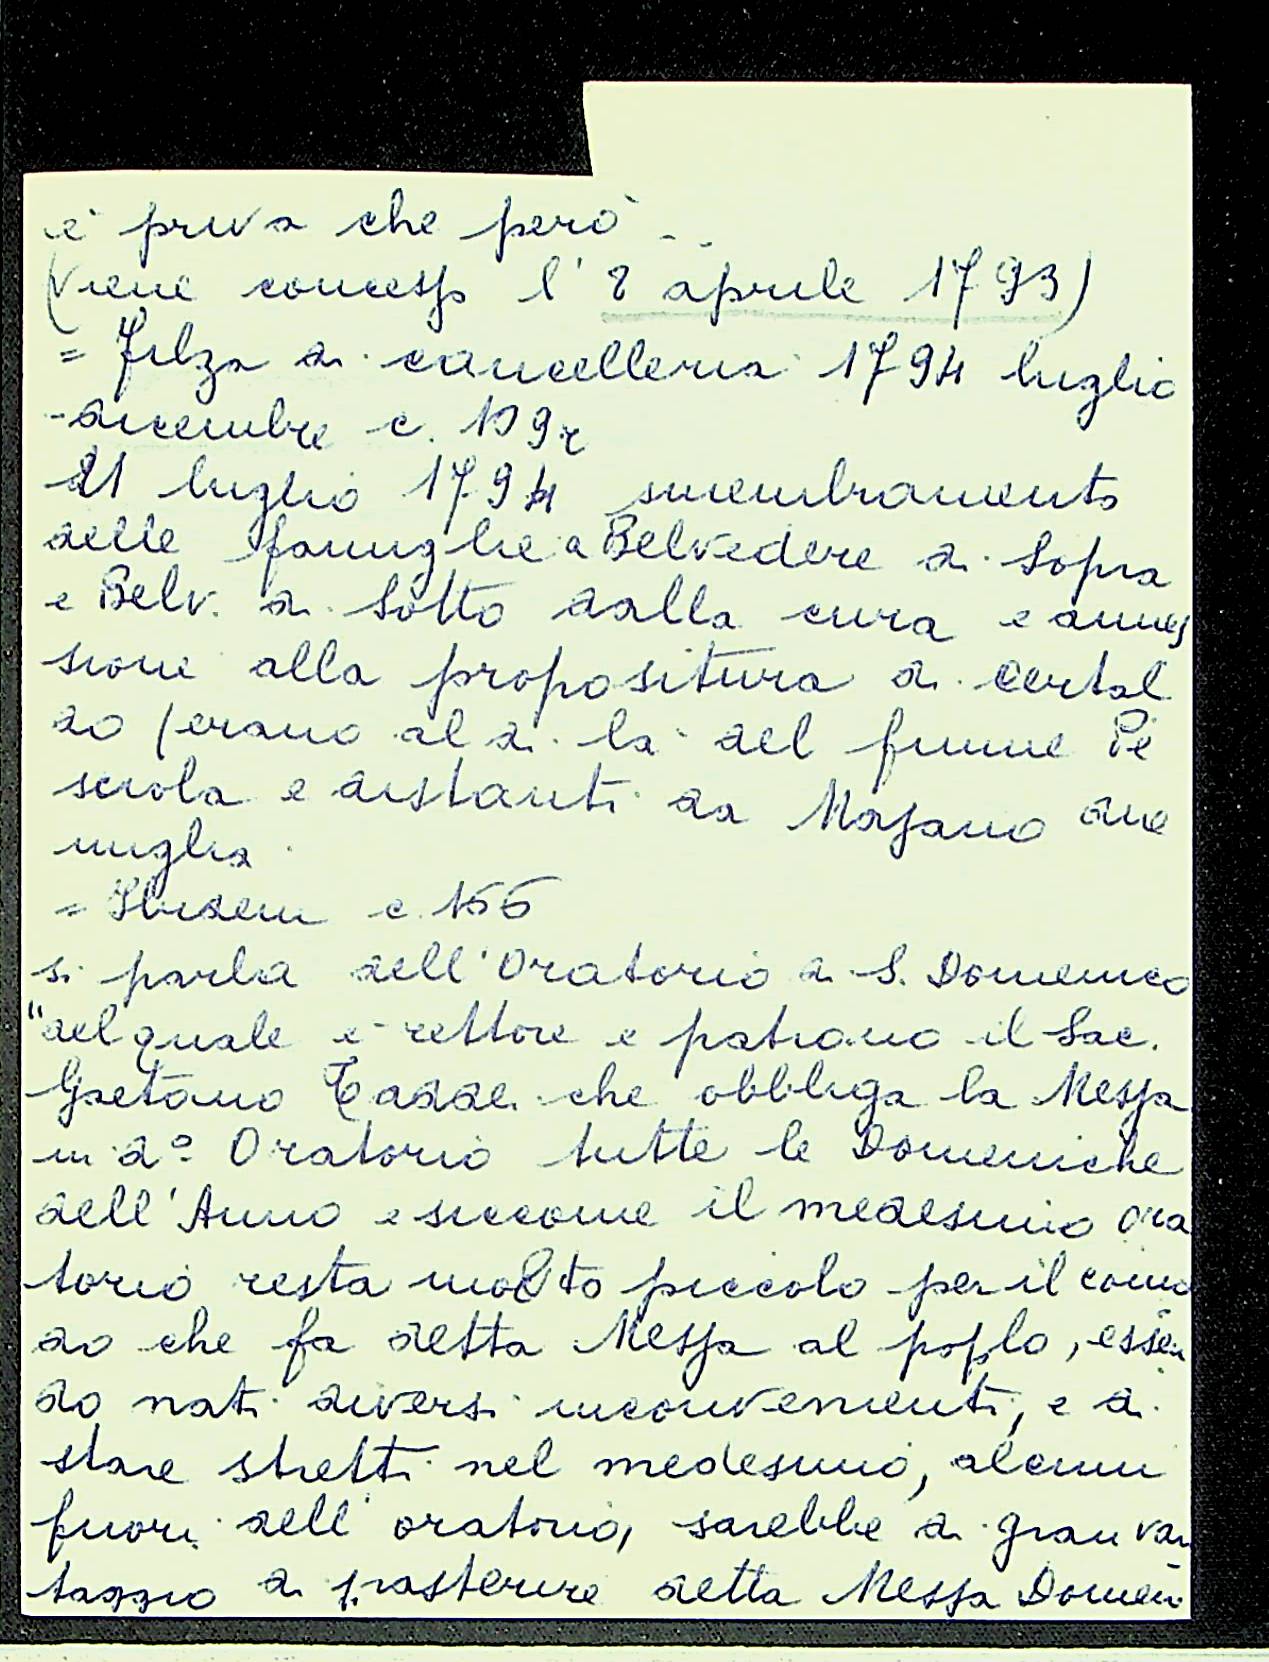 è priva che però ..
(viene concesso l'8 aprile 1793)
= Filza di cancelleria 1794 luglio
- dicembre c. 109r
21 luglio 1794 smembramento
delle famiglie a Belvedere di Sopra
e Belv. di Sotto dalla cura e annes
sione alla propositura di Certal
do (erano al di là del fiume Pe
sciola e distanti da Mosano due
miglia
= Ibidem c. 166
si parla dell'Oratorio di S. Domenico
"del quale è rettore e patrono il Sac.
Gaetano Taddei che obbliga la Messa
in d.º Oratorio tutte le Domeniche
dell'Anno e siccome il medesimo Ora
torio resta molto piccolo per il como
do che fa detta Messa al poplo, essen
do nati diversi inconvenienti, e di
stare stretti nel medesimo, alcuni
fuori dell'oratorio, sarebbe di gran van
taggio di trasferire detta Messa Domeni